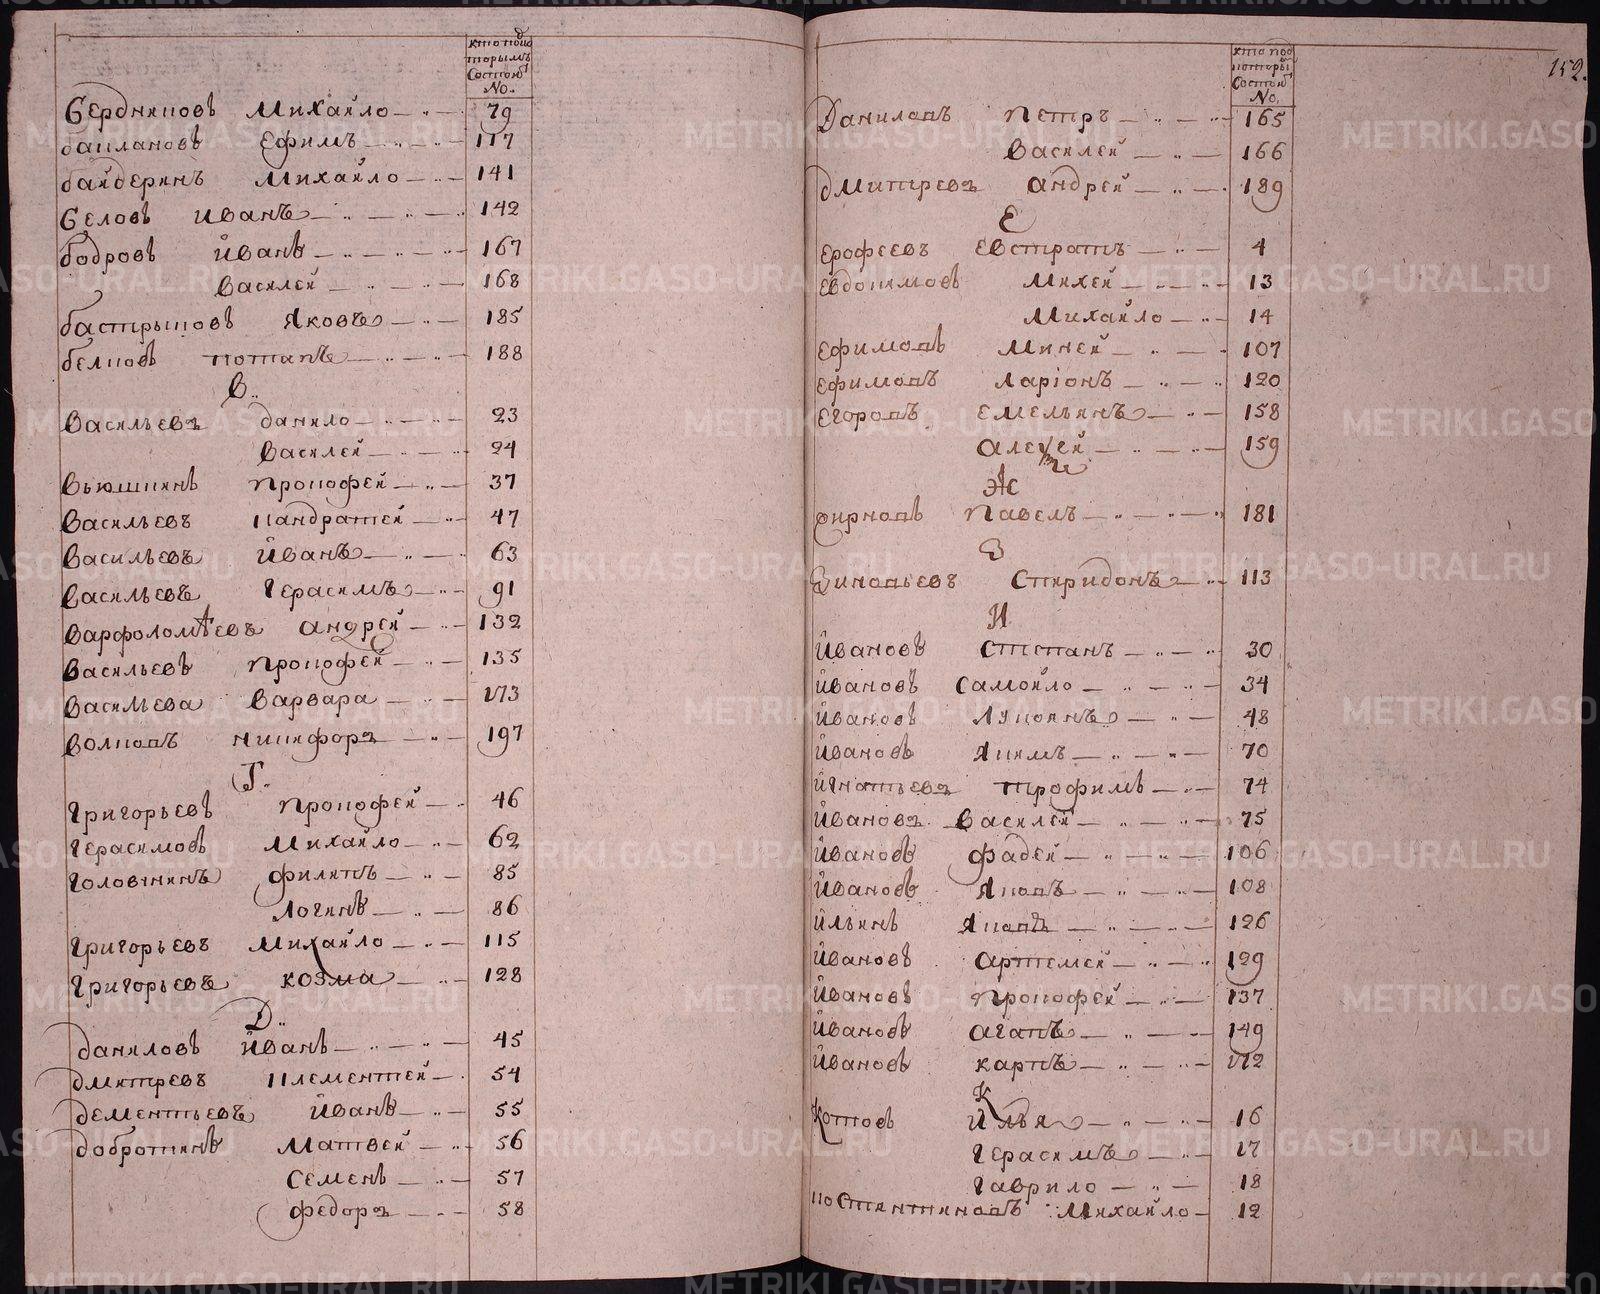 кто под
которымъ
состоитъ
No.
Бердниковъ Михайло 79
баклановъ Ефимъ 117
байдеринъ Михайло 141
Беловъ Иванъ 142
бобровъ Иванъ 167
Василей 168
бастрыковъ Яковъ 185
белковъ потапъ 188
В.
Васильевъ данило 23
Василей 24
Вьюшкинъ прокофей 37
Васильевъ Кандратей 47
Васильевъ Иванъ 63
Васильевъ Герасимъ 91
Варфоломѣевъ андрей 132
Васильевъ прокофей 135
Васильева Варвара 173
Волковъ никифоръ 197
Г.
Григорьевъ прокофей 46
Герасимовъ Михайло 62
Головнинъ филипъ 85
Логинъ 86
Григорьевъ Михайло 115
Григорьевъ козма 128
Д
даниловъ Иванъ 45
дмитревъ Клементей 54
дементьевъ Иванъ 55
добротинъ Матвей 56
Семенъ 57
федоръ 58
152.
кто под
которы
состоитъ
No.
Даниловъ петръ 165
Василей 166
дмитревъ андрей 189
Е
Ерофеевъ Евстратъ 4
Евдокимовъ Михей 13
Михайло 14
Ефимовъ Миней 107
Ефимовъ Ларіонъ 120
Егоровъ Емельянъ 158
алексей 159
Ж
жирновъ павелъ 181
З
Зиновьевъ Спиридонъ 113
И
Ивановъ Степанъ 30
Ивановъ Самойло 34
Ивановъ Лукоянъ 48
Ивановъ Якимъ 70
Игнатьевъ трофимъ 74
Ивановъ Василей 75
Ивановъ фадей 106
Ивановъ Яковъ 108
Ильинъ Яковъ 126
Ивановъ артемей 129
Ивановъ прокофей 137
Ивановъ агапъ 149
Ивановъ карпъ 172
К
Котовъ Илья 16
Герасимъ 17
Гаврило 18
Костянтиновъ Михайло 12
METRIKI.GASO-URAL.RU